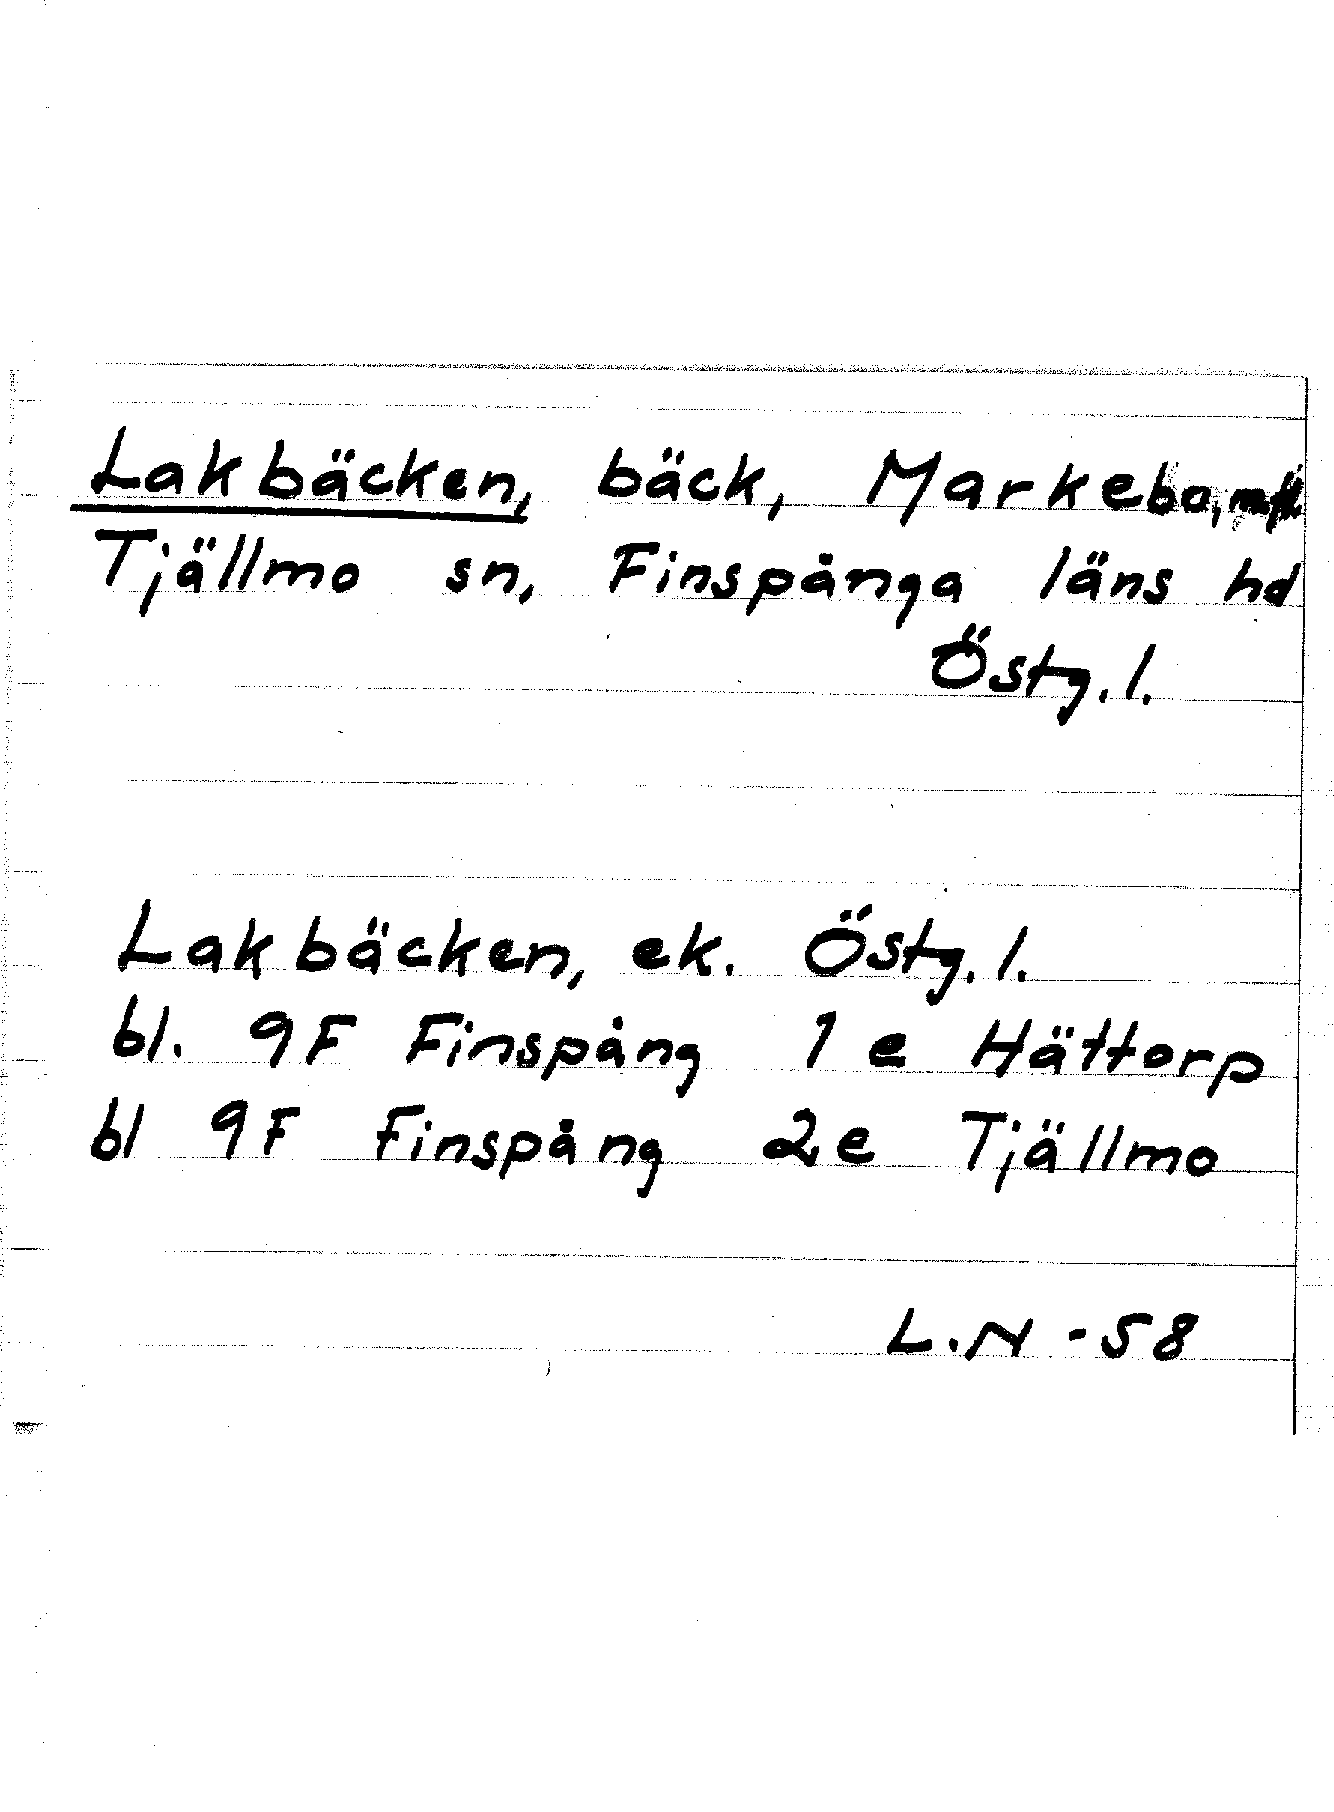 Lakbäcken, bäck, Markebo,
Tjällmo sn, Finspånga läns hd
Östg. l.
Lakbäcken, ek. Östg. l.
bl. 9F Finspång 1 e Hättorp
bl 9F Finspång 2e Tjällmo
L.N -58